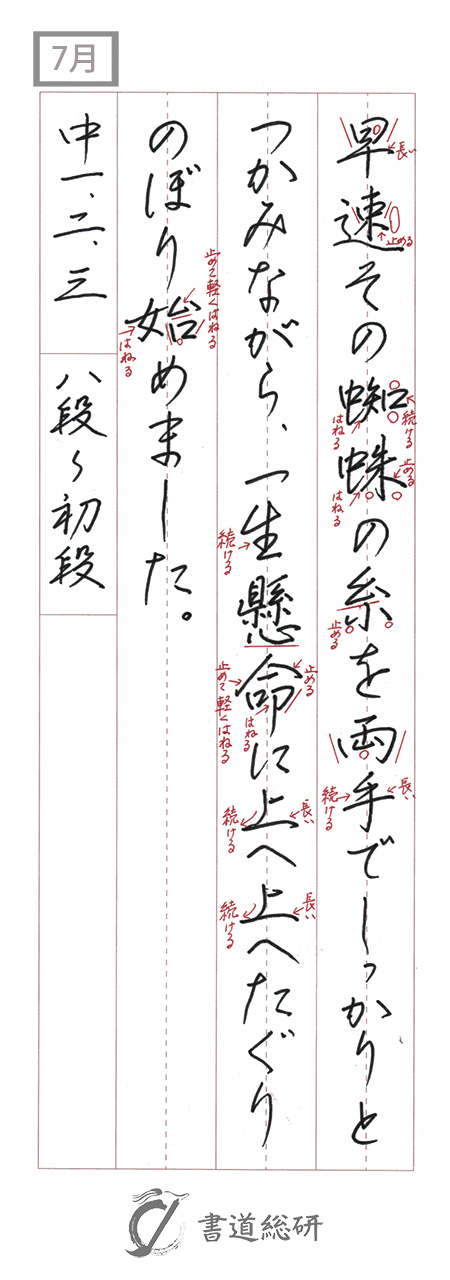 7月
早速その蜘蛛の糸を両手でしっかりと
つかみながら、一生懸命に上へ上へたぐり
のぼり始めました。
中一、二、三
八段〜初段
長い
止める
続ける
はねる
止める
はねる
止める
長い
続ける
続ける
止める
止めて軽くはねる
はねる
長い
続ける
長い
続ける
止めて軽くはねる
はねる
書道総研